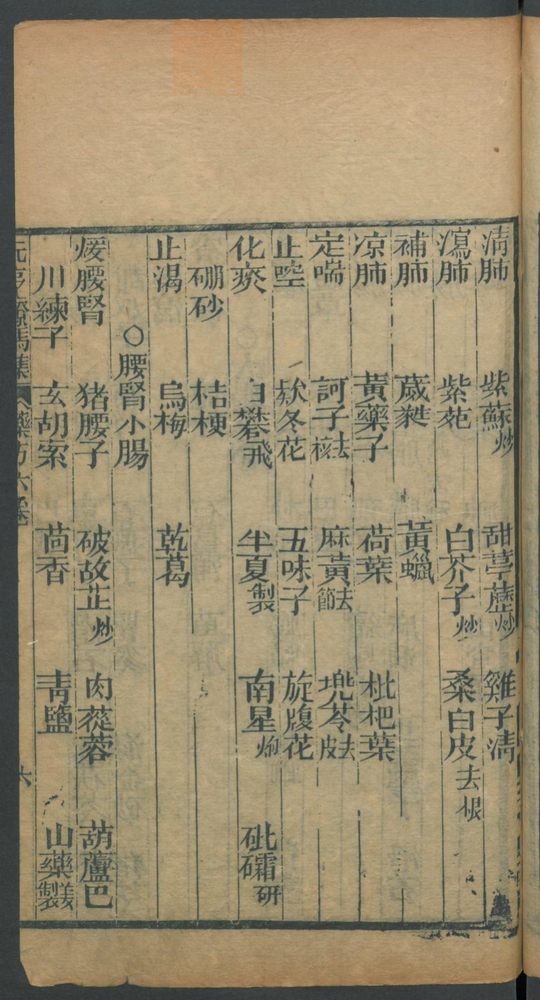 清肺 紫蘇炒 甜葶藶炒 雞子清
瀉肺 紫菀 白芥子炒 桑白皮去根
補肺 葳蕤 黃蠟
凉肺 黃藥子 荷葉 枇杷葉
定喘 訶子去核 麻黃去節 兠苓去皮
止㖞 欵冬花 五味子 旋腹花
化痰 白礬飛 半夏製 南星炮 砒礵研
硼砂 桔梗
止渴 烏梅 乾葛
○腰腎小腸
煖腰腎 猪腰子 破故芷炒 肉蓯蓉 葫蘆巴
川練子 玄胡索 茴香 青鹽 山藥姜製
元亨療馬集 藥方六卷 六